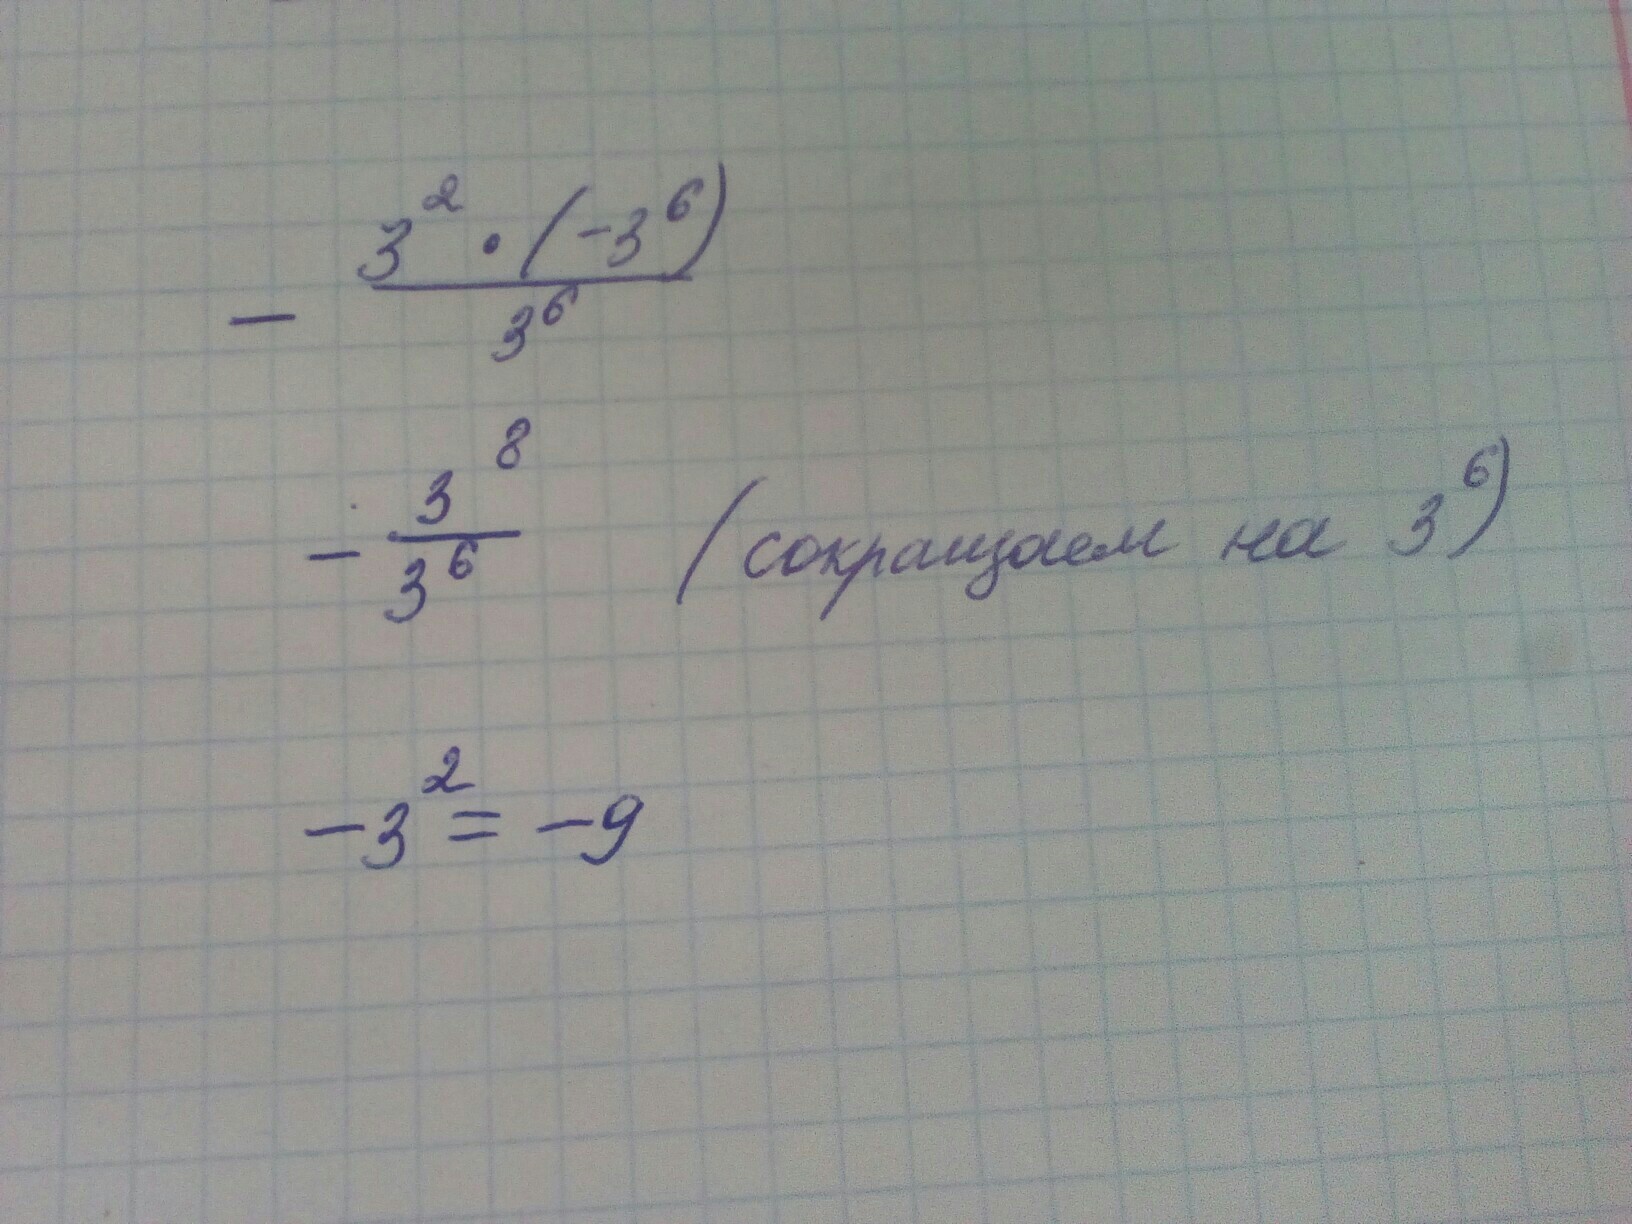 - 3² · (-3⁶) / 3⁶
- 3⁸ / 3⁶ (сокращаем на 3⁶)
-3² = -9